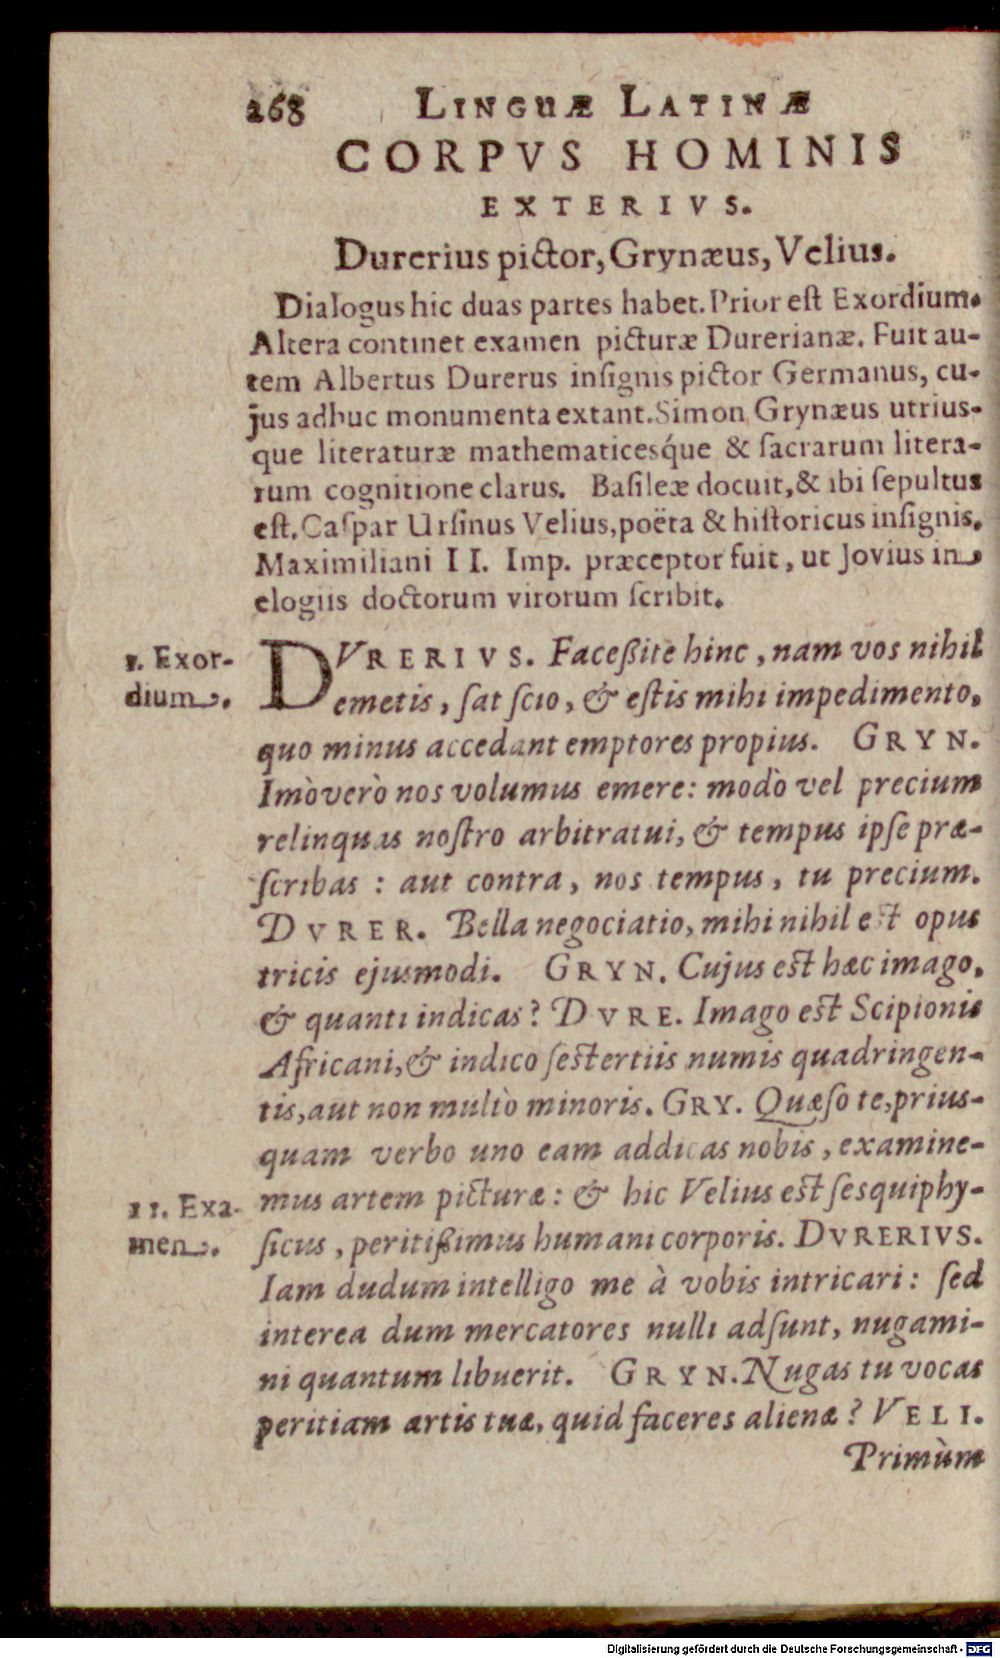 268 LINGUÆ LATINÆ
CORPVS HOMINIS
EXTERIVS.
Durerius pictor, Grynæus, Velius.
Dialogus hic duas partes habet. Prior est Exordium.
Altera continet examen picturæ Durerianæ. Fuit au-
tem Albertus Durerus insignis pictor Germanus, cu-
jus adhuc monumenta extant. Simon Grynæus utrius-
que literaturæ mathematicesq́ue & sacrarum litera-
rum cognitione clarus. Basileæ docuit, & ibi sepultus
est. Caspar Ursinus Velius, poëta & historicus insignis,
Maximiliani II. Imp. præceptor fuit, ut Jovius in
elogiis doctorum virorum scribit.
1. Exor-
dium.
DVRERIVS. Faceßite hinc, nam vos nihil
emetis, sat scio, & estis mihi impedimento,
quo minus accedant emptores propius. GRYN.
Imò verò nos volumus emere: modò vel precium
relinquas nostro arbitratui, & tempus ipse præ-
scribas : aut contra, nos tempus, tu precium.
DVRER. Bella negociatio, mihi nihil est opus
tricis ejusmodi. GRYN. Cujus est hæc imago,
& quanti indicas? DVRE. Imago est Scipionis
Africani, & indico sestertiis numis quadringen-
tis, aut non multò minoris. GRY. Quæso te, prius-
quam verbo uno eam addicas nobis, examine-
11. Exa-
men.
mus artem picturæ : & hic Velius est sesquiphy-
sicus, peritißimus humani corporis. DVRERIVS.
Iam dudum intelligo me à vobis intricari : sed
interea dum mercatores nulli adsunt, nugami-
ni quantum libuerit. GRYN. Nugas tu vocas
peritiam artis tuæ, quid faceres alienæ? VELI.
Primùm
Digitalisierung gefördert durch die Deutsche Forschungsgemeinschaft - DFG